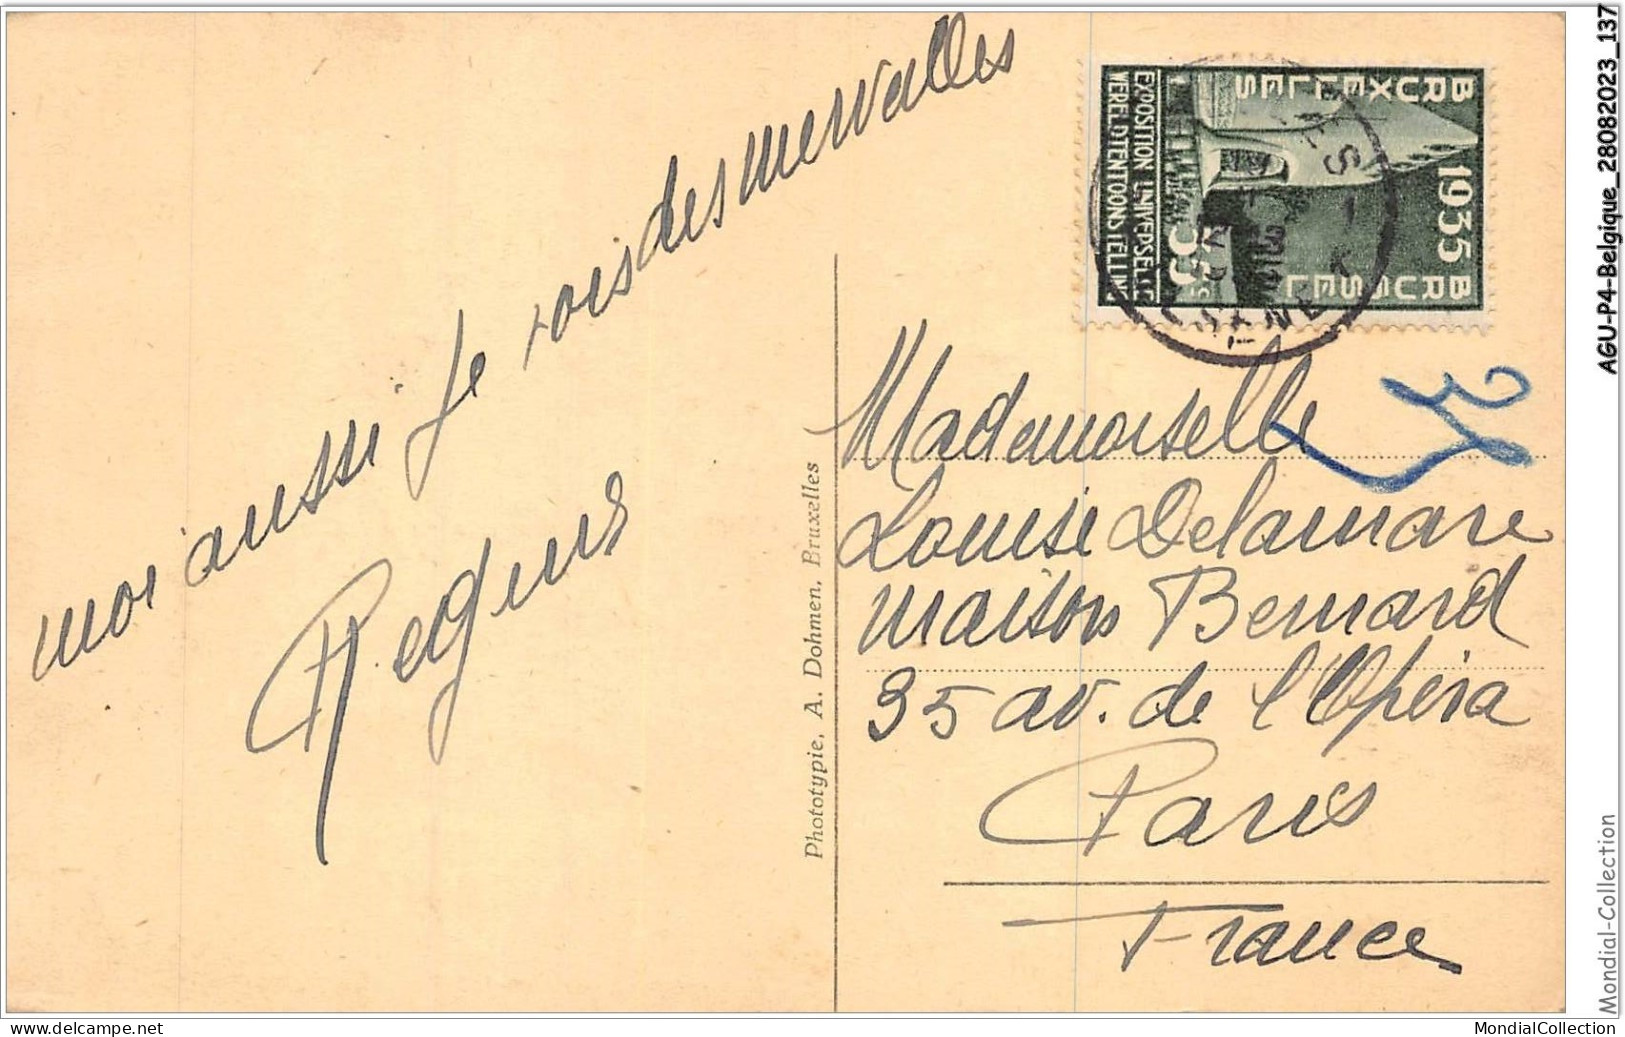 moi aussi je vois des mervalles
Regine
Phototypie, A. Dohmen, Bruxelles
BRUXELLES 1935 BRUSSEL
EXPOSITION UNIVERSELLE
WERELDTENTOONSTELLING
35 c
Mademoiselle
Louise Delamare
maison Bernard
35 av. de l'Opéra
Paris
France
AGU-P4-Belgique_28082023_137
Mondial-Collection
www.delcampe.net
MondialCollection